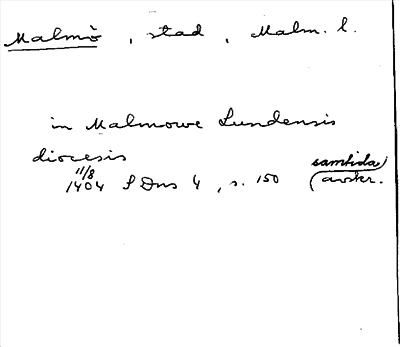 Malmö, stad, Malm. l.
in Malmowe Lundensis
diocesis
11/8
1404 SDns 4, s. 150 (samtida avskr.)